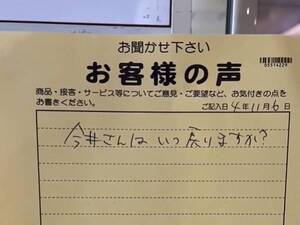 お聞かせ下さい
00514229
お客様の声
商品・接客・サービス等についてご意見・ご要望など、お気付きの点を
お書きください。
ご記入日 4年11月6日
今井さんは いつ戻りますか?